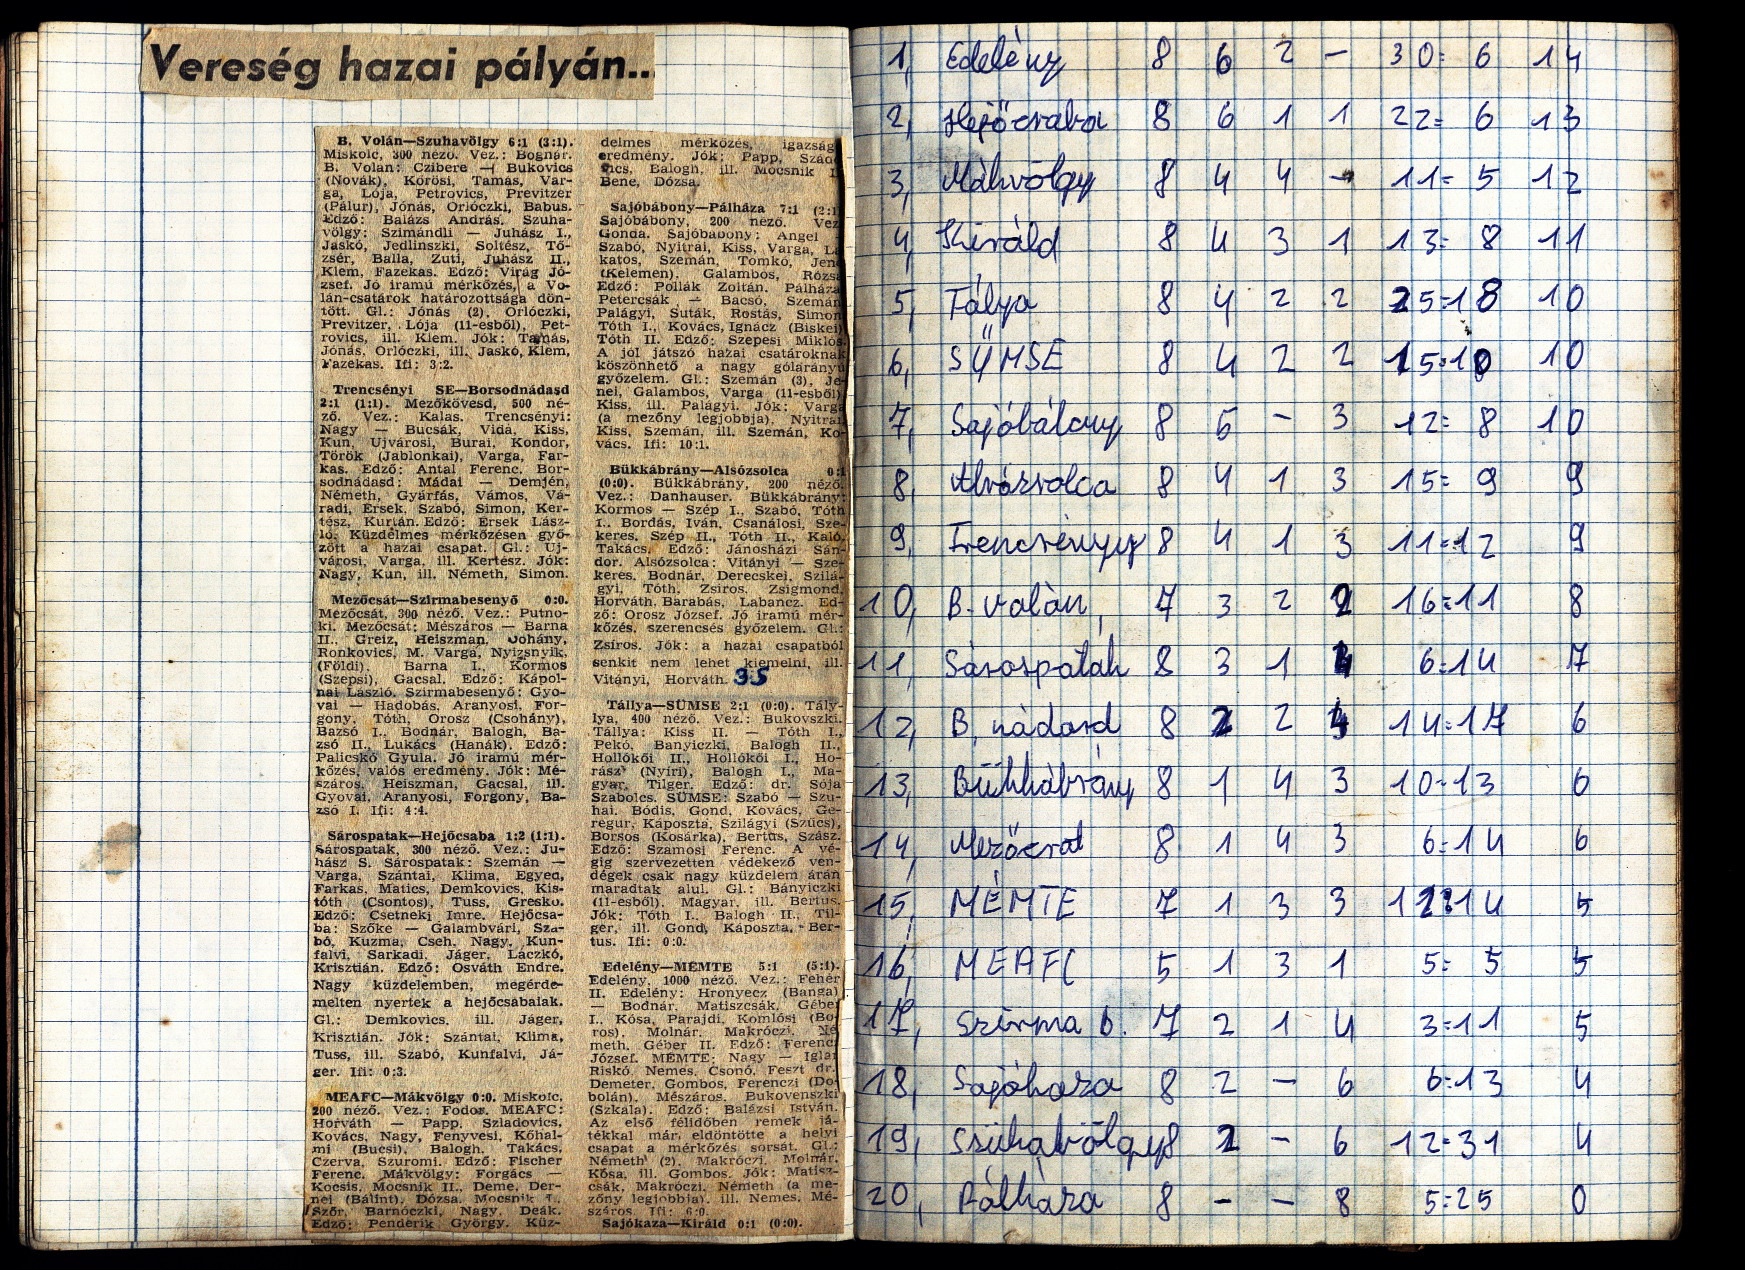 Vereség hazai pályán...
B. Volán—Szuhavölgy 6:1 (3:1).
Miskolc, 300 néző. Vez.: Bognár.
B. Volán: Czibere — Bukovics
(Novák), Kőrösi, Tamás, Var-
ga, Lója, Petrovics, Previtzer
(Pálur), Jónás, Orlóczki, Babus.
Edző: Balázs András. Szuha-
völgy: Szimándli — Juhász I.,
Jaskó, Jedlinszki, Soltész, Tő-
zsér, Balla, Zuti, Juhász II.,
Klem, Fazekas. Edző: Virág Jó-
zsef. Jó iramú mérkőzés, a Vo-
lán-csatárok határozottsága dön-
tött. Gl.: Jónás (2), Orlóczki,
Previtzer, Lója (11-esből), Pet-
rovics, ill. Klem. Jók: Tamás,
Jónás, Orlóczki, ill. Jaskó, Klem,
Fazekas. Ifi: 3:2.
Trencsényi SE—Borsodnádasd
2:1 (1:1). Mezőkövesd, 500 né-
ző. Vez.: Kalas. Trencsényi:
Nagy — Bucsák, Vida, Kiss,
Kun, Ujvárosi, Burai, Kondor,
Török (Jablonkai), Varga, Far-
kas. Edző: Antal Ferenc. Bor-
sodnádasd: Mádai — Demjén,
Németh, Gyárfás, Vámos, Vá-
radi, Érsek, Szabó, Simon, Ker-
tész, Kurián. Edző: Érsek Lász-
ló. Küzdelmes mérkőzésen győ-
zött a hazai csapat. Gl.: Uj-
városi, Varga, ill. Kertész. Jók:
Nagy, Kun, ill. Németh, Simon.
Mezőcsát—Szirmabesenyő 0:0.
Mezőcsát, 300 néző. Vez.: Putno-
ki. Mezőcsát: Mészáros — Barna
II., Greiz, Heiszman, Dohány,
Ronkovics, M. Varga, Nyizsnyik,
(Földi), Barna I., Kormos
(Szepsi), Gacsal. Edző: Kápol-
nai László. Szirmabesenyő: Gyo-
vai — Hadobás, Aranyosi, For-
gony, Tóth, Orosz (Csohány),
Bazsó I., Bodnár, Balogh, Ba-
zsó II., Lukács (Hanák). Edző:
Palicskó Gyula. Jó iramú mér-
kőzés, valós eredmény. Jók: Mé-
száros, Heiszman, Gacsal, ill.
Gyovai, Aranyosi, Forgony, Ba-
zsó I. Ifi: 4:4.
Sárospatak—Hejőcsaba 1:2 (1:1).
Sárospatak, 300 néző. Vez.: Ju-
hász S. Sárospatak: Szemán —
Varga, Szántai, Klima, Egyed,
Farkas, Matics, Demkovics, Kis-
tóth (Csontos), Tuss, Gresku.
Edző: Csetneki Imre. Hejőcsa-
ba: Szőke — Galambvári, Sza-
bó, Kuzma, Cseh, Nagy, Kun-
falvi, Sarkadi, Jáger, Laczkó,
Krisztián. Edző: Osváth Endre.
Nagy küzdelemben, megérde-
melten nyertek a hejőcsabaiak.
Gl.: Demkovics, ill. Jáger,
Krisztián. Jók: Szántai, Klima,
Tuss, ill. Szabó, Kunfalvi, Já-
ger. Ifi: 0:3.
MEAFC—Mákvölgy 0:0. Miskolc,
200 néző. Vez.: Fodor. MEAFC:
Horváth — Papp, Szladovics,
Kovács, Nagy, Fenyvesi, Kőhal-
mi (Bucsi), Balogh, Takács,
Czerva, Szuromi. Edző: Fischer
Ferenc. Mákvölgy: Forgács —
Kocsis, Mocsnik II., Deme, Der-
nei (Bálint), Dózsa, Mocsnik I.,
Szőr, Barnóczki, Nagy, Deák.
Edző: Penderik György. Küz-
delmes mérkőzés, igazság
eredmény. Jók: Papp, Szlad
vics, Balogh, ill. Mocsnik I.
Bene, Dózsa.
Sajóbábony—Pálháza 7:1 (2:1
Sajóbábony, 200 néző. Vez
Gonda. Sajóbábony: Angel
Szabó, Nyitrai, Kiss, Varga, La
katos, Szemán, Tomkó, Jene
(Kelemen), Galambos, Rózsa
Edző: Pollák Zoltán. Pálháza
Petercsák — Bacsó, Szemán
Palágyi, Suták, Rostás, Simon
Tóth I., Kovács, Ignácz (Biskei)
Tóth II. Edző: Szepesi Miklós
A jól játszó hazai csatároknak
köszönhető a nagy gólarányú
győzelem. Gl.: Szemán (3), Je-
nei, Galambos, Varga (11-esből)
Kiss, ill. Palágyi. Jók: Varga
(a mezőny legjobbja), Nyitrai
Kiss, Szemán, ill. Szemán, Ko-
vács. Ifi: 10:1.
Bükkábrány—Alsózsolca 0:1
(0:0). Bükkábrány, 200 néző.
Vez.: Danhauser. Bükkábrány:
Kormos — Szép I., Szabó, Tóth
I., Bordás, Iván, Csanálosi, Sze-
keres, Szép II., Tóth II., Kaló,
Takács. Edző: Jánosházi Sán-
dor. Alsózsolca: Vitányi — Sze-
keres, Bodnár, Derecskei, Szilá-
gyi, Tóth, Zsíros, Zsigmond,
Horváth, Barabás, Labancz. Ed-
ző: Orosz József. Jó iramú mér-
kőzés, szerencsés győzelem. Gl.:
Zsíros. Jók: a hazai csapatból
senkit nem lehet kiemelni, ill.
Vitányi, Horváth. 35
Tállya—SÜMSE 2:1 (0:0). Tály-
lya, 400 néző. Vez.: Bukovszki.
Tállya: Kiss II. — Tóth I.,
Pekó, Banyiczki, Balogh II.,
Hollókői II., Hollókői I., Ho-
rász (Nyíri), Balogh I., Ma-
gyar, Tilger. Edző: dr. Sója
Szabolcs. SÜMSE: Szabó — Szu-
hai, Bódis, Gond, Kovács, Ge-
regur, Káposzta, Szilágyi (Szűcs),
Borsos (Kosárka), Bertus, Szász.
Edző: Szamosi Ferenc. A vé-
gig szervezetten védekező ven-
dégek csak nagy küzdelem árán
maradtak alul. Gl.: Bányiczki
(11-esből), Magyar, ill. Bertus.
Jók: Tóth I., Balogh II., Til-
ger, ill. Gond, Káposzta, Ber-
tus. Ifi: 0:0.
Edelény—MÉMTE 5:1 (5:1).
Edelény, 1000 néző. Vez.: Fehér
II. Edelény: Hronyecz (Banga)
— Bodnár, Matiszcsák, Géber
I., Kósa, Parajdi, Komlósi (Bo-
ros), Molnár, Makróczi, Né
meth, Géber II. Edző: Ferenc
József. MÉMTE: Nagy — Iglai
Riskó, Nemes, Csonó, Feszt dr.
Demeter, Gombos, Ferenczi (Do-
bolán), Mészáros, Bukovenszki
(Szkala). Edző: Balázsi István.
Az első félidőben remek já-
tékkal már eldöntötte a helyi
csapat a mérkőzés sorsát. Gl.:
Németh (2), Makróczi, Molnár,
Kósa, ill. Gombos. Jók: Matisz-
csák, Makróczi, Németh (a me-
zőny legjobbja), ill. Nemes, Mé-
száros. Ifi: 6:0.
Sajókaza—Királd 0:1 (0:0).
1, Edelény 8 6 2 – 30: 6 14
2, Hejőcsaba 8 6 1 1 22: 6 13
3, Mákvölgy 8 4 4 – 11: 5 12
4, Királd 8 4 3 1 13: 8 11
5, Tálya 8 4 2 2 25:18 10
6, SÜMSE 8 4 2 2 15:10 10
7, Sajóbábony 8 5 – 3 12: 8 10
8, Alsózsolca 8 4 1 3 15: 9 9
9, Trencsényi 8 4 1 3 11:12 9
10, B. volán 7 3 2 2 16:11 8
11, Sárospatak 8 3 1 4 6:14 7
12, B. nádasd 8 2 2 4 14:17 6
13, Bükkábrány 8 1 4 3 10:13 6
14, Mezőcsát 8 1 4 3 6:14 6
15, MÉMTE 7 1 3 3 12:14 5
16, MEAFC 5 1 3 1 5: 5 5
17, Szirma b. 7 2 1 4 3:11 5
18, Sajókaza 8 2 – 6 6:13 4
19, Szuhavölgy 8 2 – 6 12:31 4
20, Pálháza 8 – – 8 5:25 0